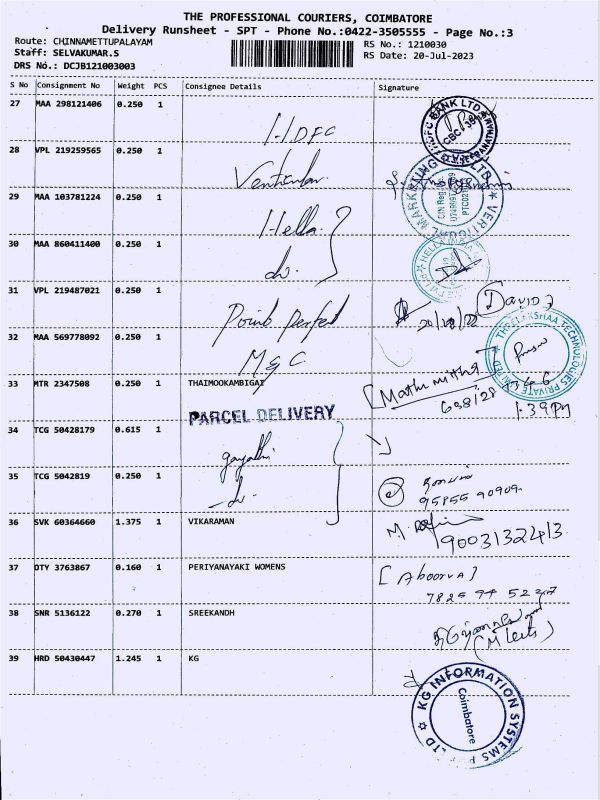 THE PROFESSIONAL COURIERS, COIMBATORE
Delivery Runsheet - SPT - Phone No.:0422-3505555 - Page No.:3
Route: CHINNAMETTUPALAYAM
RS No.: 1210030
Staff: SELVAKUMAR.S
RS Date: 20-Jul-2023
DRS No.: DCJB121003003
S No Consignment No Weight PCS Consignee Details Signature
27 MAA 298121406 0.250 1 HDFC
28 VPL 219259565 0.250 1 Ventícular
29 MAA 103781224 0.250 1 Hella
30 MAA 860411400 0.250 1 do.
31 VPL 219487021 0.250 1 Point perfect [David]
32 MAA 569778092 0.250 1 M&C
33 MTR 2347508 0.250 1 THAIMOOKAMBIGAI [Mathumitha]
1.39pm
PARCEL DELIVERY
34 TCG 50428179 0.615 1 gayathi
35 TCG 5042819 0.250 1 do. 95855 90909
36 SVK 60364660 1.375 1 VIKARAMAN 9003132413
37 OTY 3763867 0.160 1 PERIYANAYAKI WOMENS [Aboorva]
78259 4 5227
38 SNR 5136122 0.270 1 SREEKANDH
39 HRD 50430447 1.245 1 KG
KG INFORMATION SYSTEMS P LTD
Coimbatore